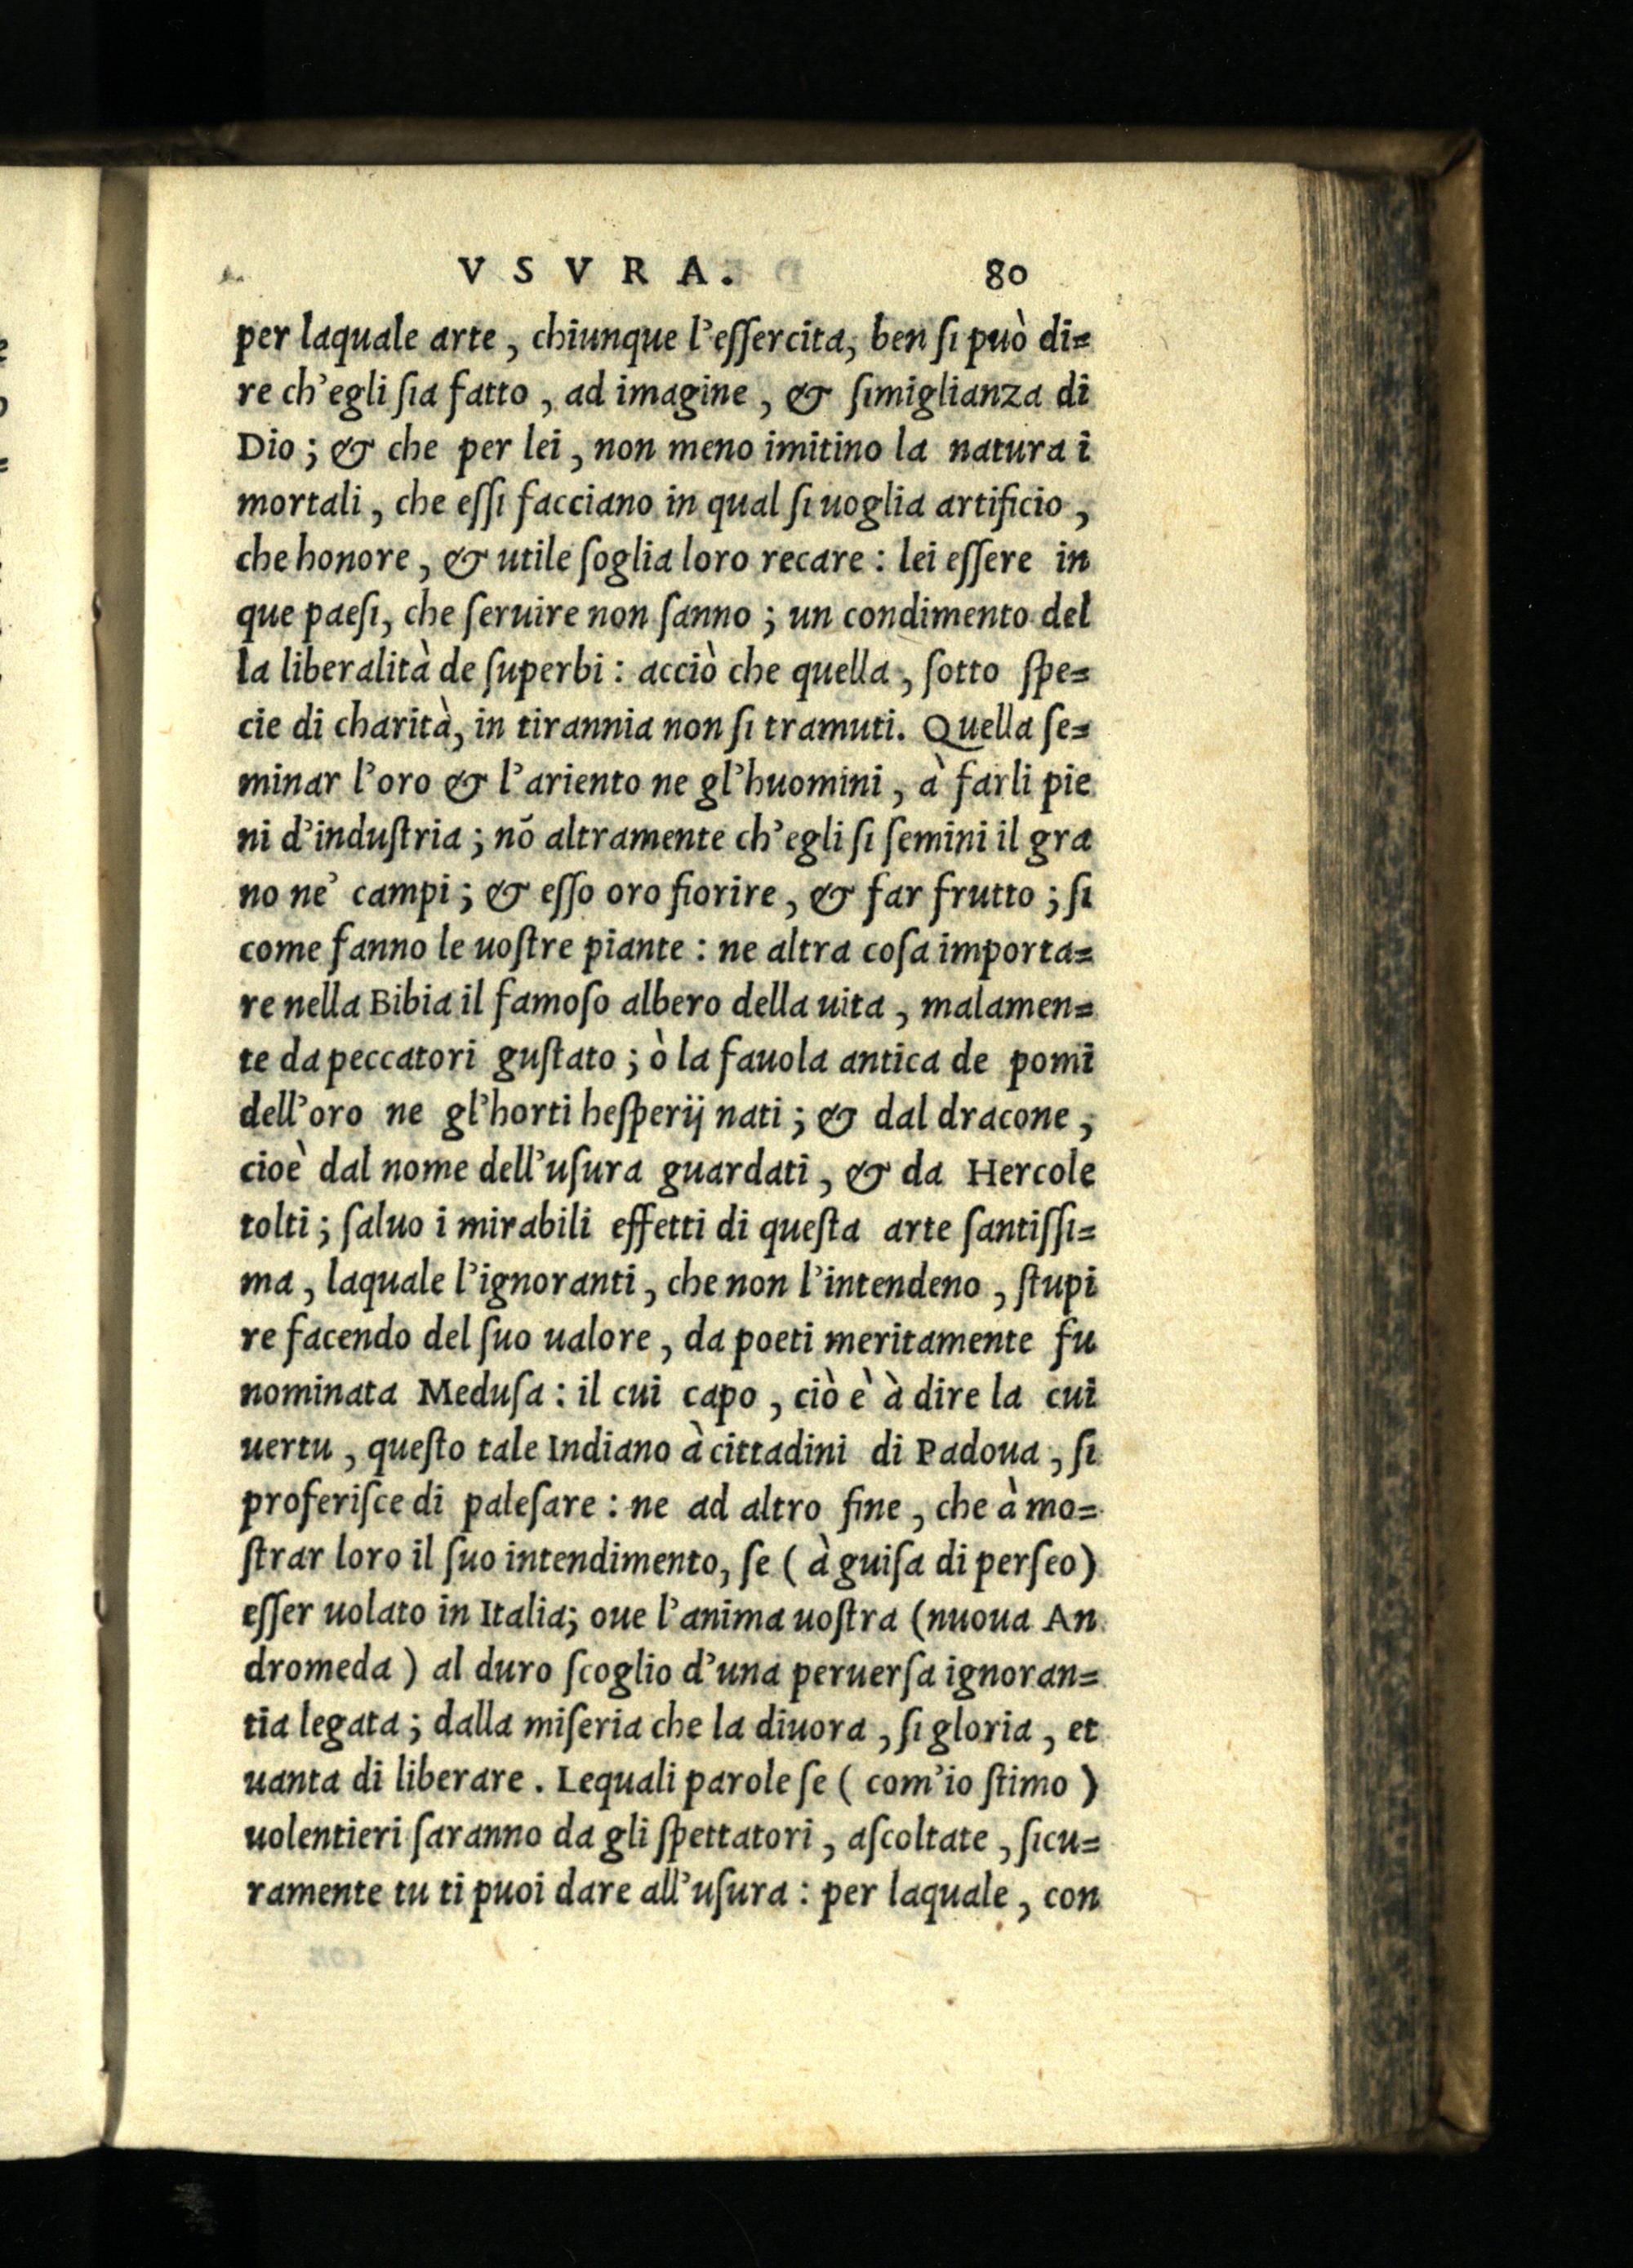 VSVRA. 80
per laquale arte, chiunque l'eſſercita, ben ſi può di=
re ch'egli ſia fatto, ad imagine, & ſimiglianza di
Dio; & che per lei, non meno imitino la natura i
mortali, che eſſi facciano in qual ſi uoglia artificio,
che honore, & utile ſoglia loro recare: lei eſſere in
que paeſi, che ſeruire non ſanno; un condimento del
la liberalità de ſuperbi: acciò che quella, ſotto ſpe=
cie di charità, in tirannia non ſi tramuti. Quella ſe=
minar l'oro & l'ariento ne gl'huomini, à farli pie
ni d'induſtria; nõ altramente ch'egli ſi ſemini il gra
no ne' campi; & eſſo oro fiorire, & far frutto; ſi
come fanno le uoſtre piante: ne altra coſa importa=
re nella Bibia il famoſo albero della uita, malamen=
te da peccatori guſtato; ò la fauola antica de pomi
dell'oro ne gl'horti heſperij nati; & dal dracone,
cioè dal nome dell'uſura guardati, & da Hercole
tolti; ſaluo i mirabili effetti di queſta arte ſantiſſi=
ma, laquale l'ignoranti, che non l'intendeno, ſtupi
re facendo del ſuo ualore, da poeti meritamente fu
nominata Meduſa: il cui capo, ciò è à dire la cui
uertu, queſto tale Indiano à cittadini di Padoua, ſi
proferiſce di paleſare: ne ad altro fine, che à mo=
ſtrar loro il ſuo intendimento, ſe (à guiſa di perſeo)
eſſer uolato in Italia; oue l'anima uoſtra (nuoua An
dromeda) al duro ſcoglio d'una peruerſa ignoran=
tia legata; dalla miſeria che la diuora, ſi gloria, et
uanta di liberare. Lequali parole ſe (com'io ſtimo)
uolentieri ſaranno da gli ſpettatori, aſcoltate, ſicu=
ramente tu ti puoi dare all'uſura: per laquale, con